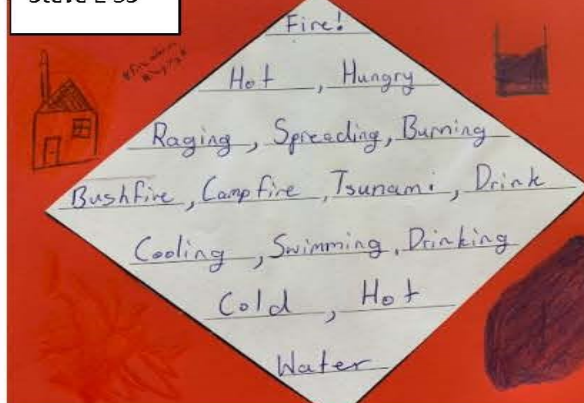 Fire!
Hot, Hungry
Raging, Spreading, Burning
Bushfire, Campfire, Tsunami, Drink
Cooling, Swimming, Drinking
Cold, Hot
Water